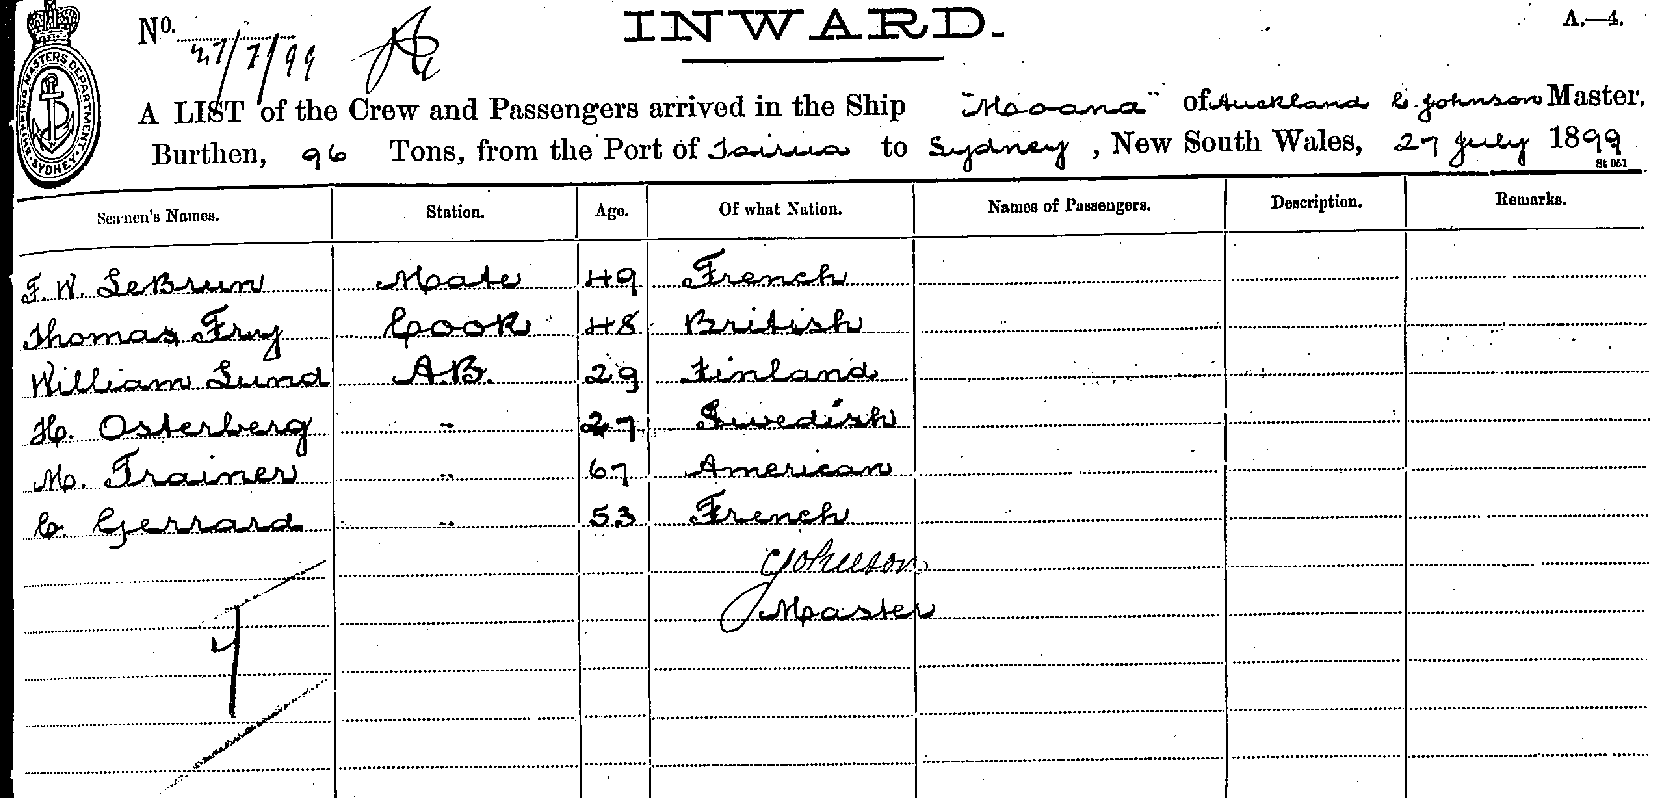 No. 27/7/99
INWARD.
A.—4.
SHIPPING MASTERS DEPARTMENT. SYDNEY.
A LIST of the Crew and Passengers arrived in the Ship "Moana" of Auckland C. Johnson Master,
Burthen, 96 Tons, from the Port of Tairua to Sydney, New South Wales, 27 July 1899
St 061
Seamen's Names. Station. Age. Of what Nation. Names of Passengers. Description. Remarks.
F. W. LeBrun Mate 49 French
Thomas Fry Cook 48 British
William Lund A.B. 29 Finland
H. Osterberg " 27 Swedish
M. Trainer " 67 American
C. Gerrard " 53 French
C Johnson
Master
7